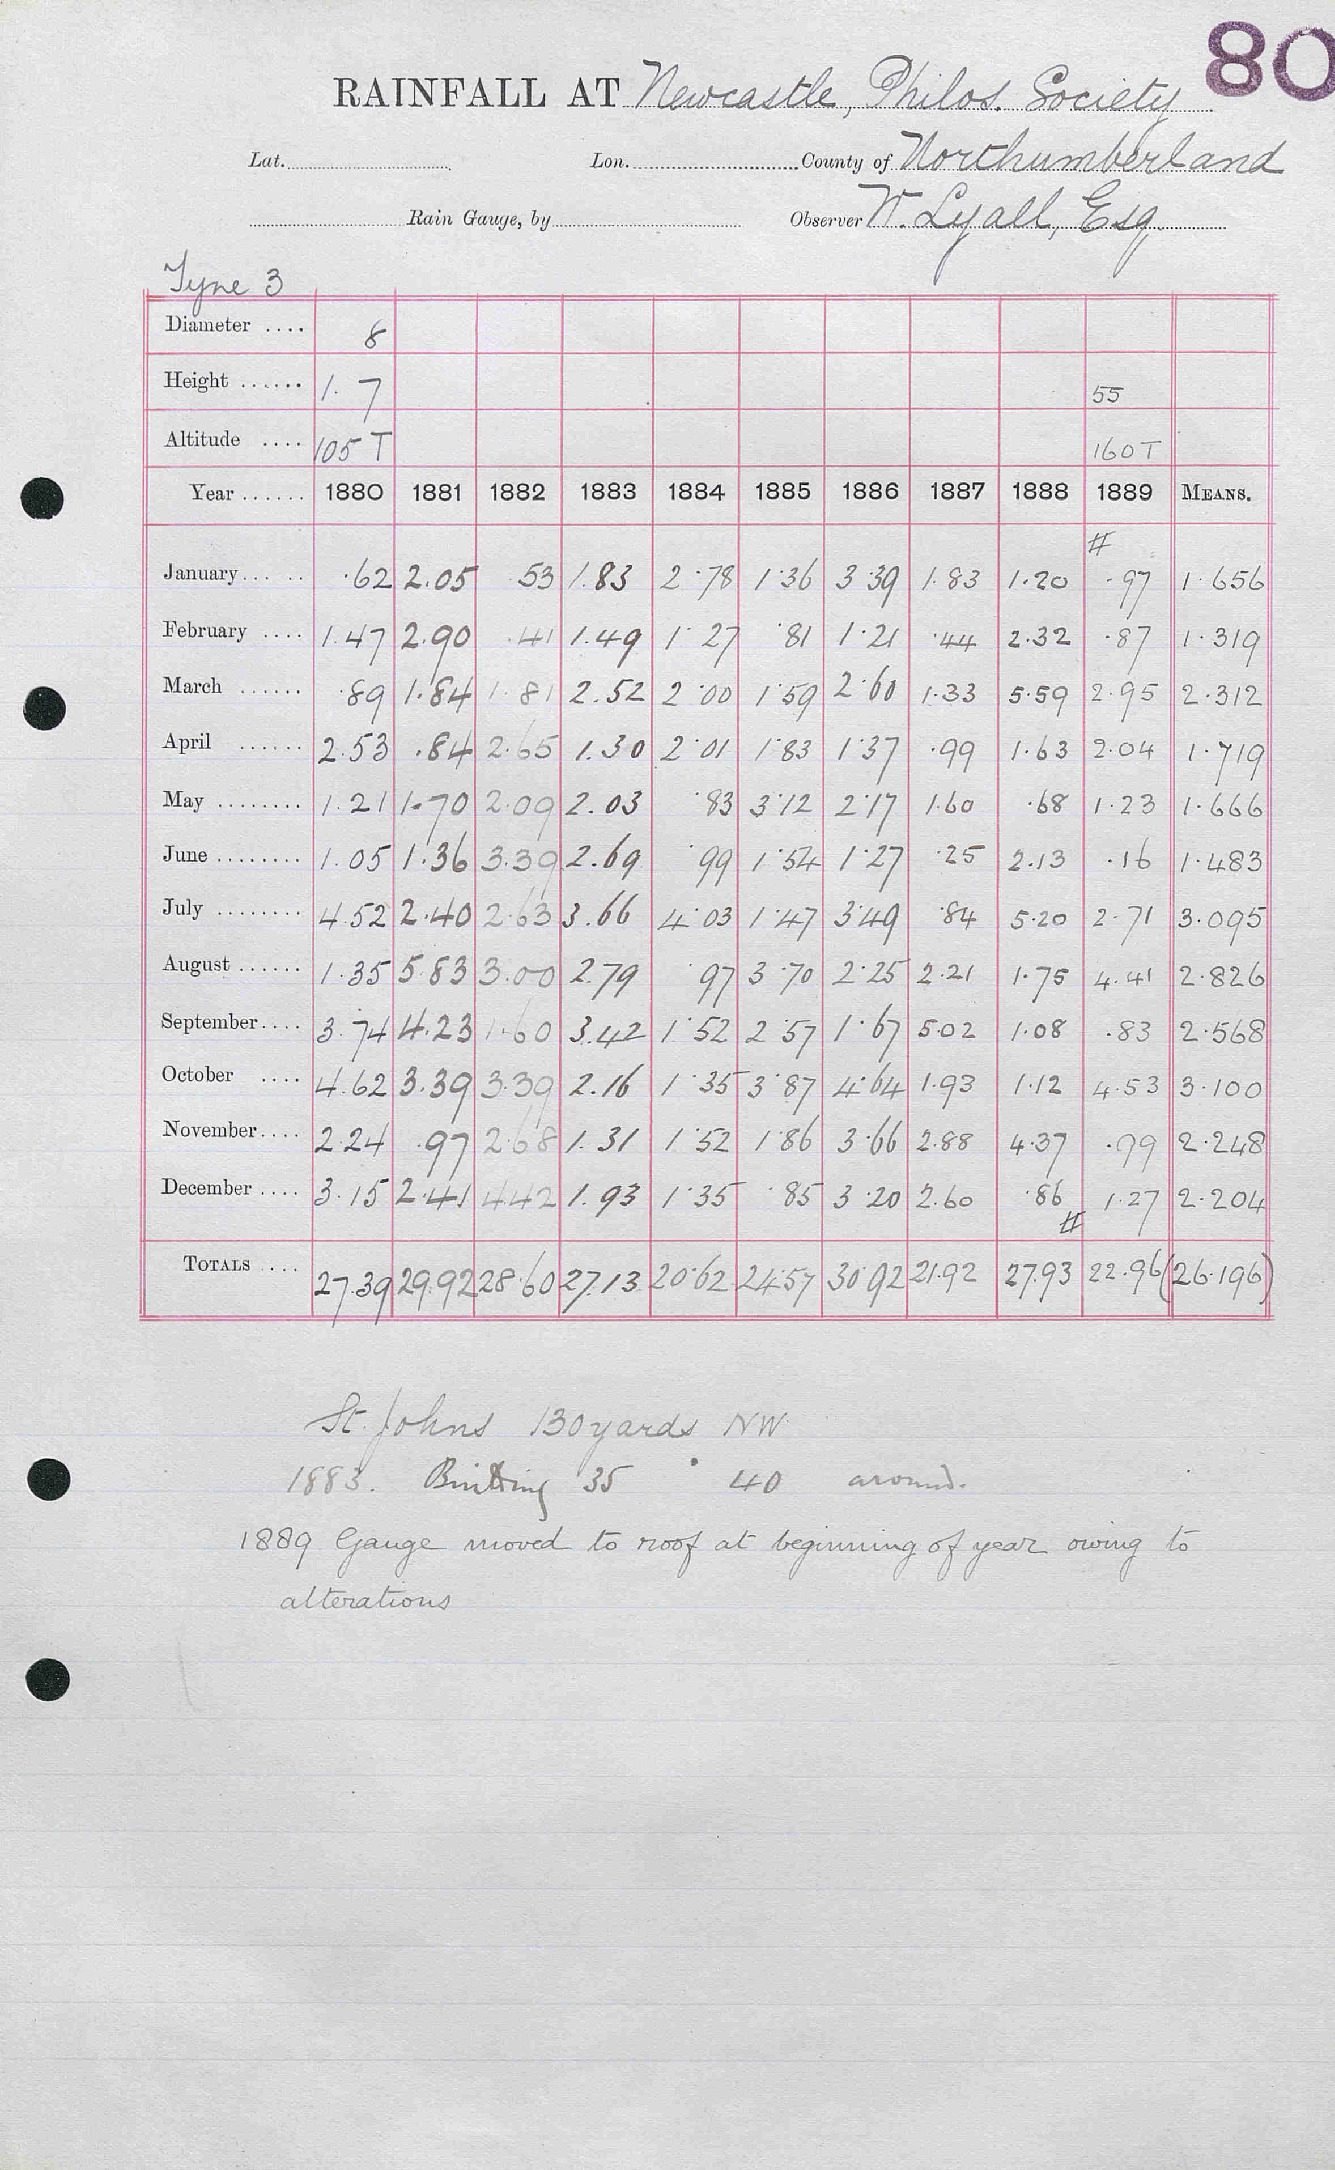 80
RAINFALL AT Newcastle, Philos. Society
Lat. Lon. County of Northumberland
Rain Gauge, by Observer W. Lyall, Esq.
Tyne 3
Diameter .... 8
Height ...... 1. 7 55
Altitude .... 105 T 160 T
Year ...... 1880 1881 1882 1883 1884 1885 1886 1887 1888 1889 MEANS.
#
January ... .62 2.05 .53 1.83 2.78 1.36 3.39 1.83 1.20 .97 1.656
February .... 1.47 2.90 .41 1.49 1.27 .81 1.21 .44 2.32 .87 1.319
March ...... .89 1.84 1.81 2.52 2.00 1.59 2.60 1.33 5.59 2.95 2.312
April ...... 2.53 .84 2.65 1.30 2.01 1.83 1.37 .99 1.63 2.04 1.719
May ........ 1.21 1.70 2.09 2.03 .83 3.12 2.17 1.60 .68 1.23 1.666
June ........ 1.05 1.36 3.39 2.69 .99 1.54 1.27 .25 2.13 .16 1.483
July ........ 4.52 2.40 2.63 3.66 4.03 1.47 3.49 .84 5.20 2.71 3.095
August ...... 1.35 5.83 3.00 2.79 .97 3.70 2.25 2.21 1.75 4.41 2.826
September .... 3.74 4.23 1.60 3.42 1.52 2.57 1.67 5.02 1.08 .83 2.568
October .... 4.62 3.39 3.39 2.16 1.35 3.87 4.64 1.93 1.12 4.53 3.100
November .... 2.24 .97 2.68 1.31 1.52 1.86 3.66 2.88 4.37 .99 2.248
December .... 3.15 2.41 4.42 1.93 1.35 .85 3.20 2.60 .86 1.27 2.204
#
TOTALS .... 27.39 29.92 28.60 27.13 20.62 24.57 30.92 21.92 27.93 22.96 (26.196)
St. Johns 130 yards NW
1883. 35 40 around.
1889 Gauge moved to roof at beginning of year owing to
alterations